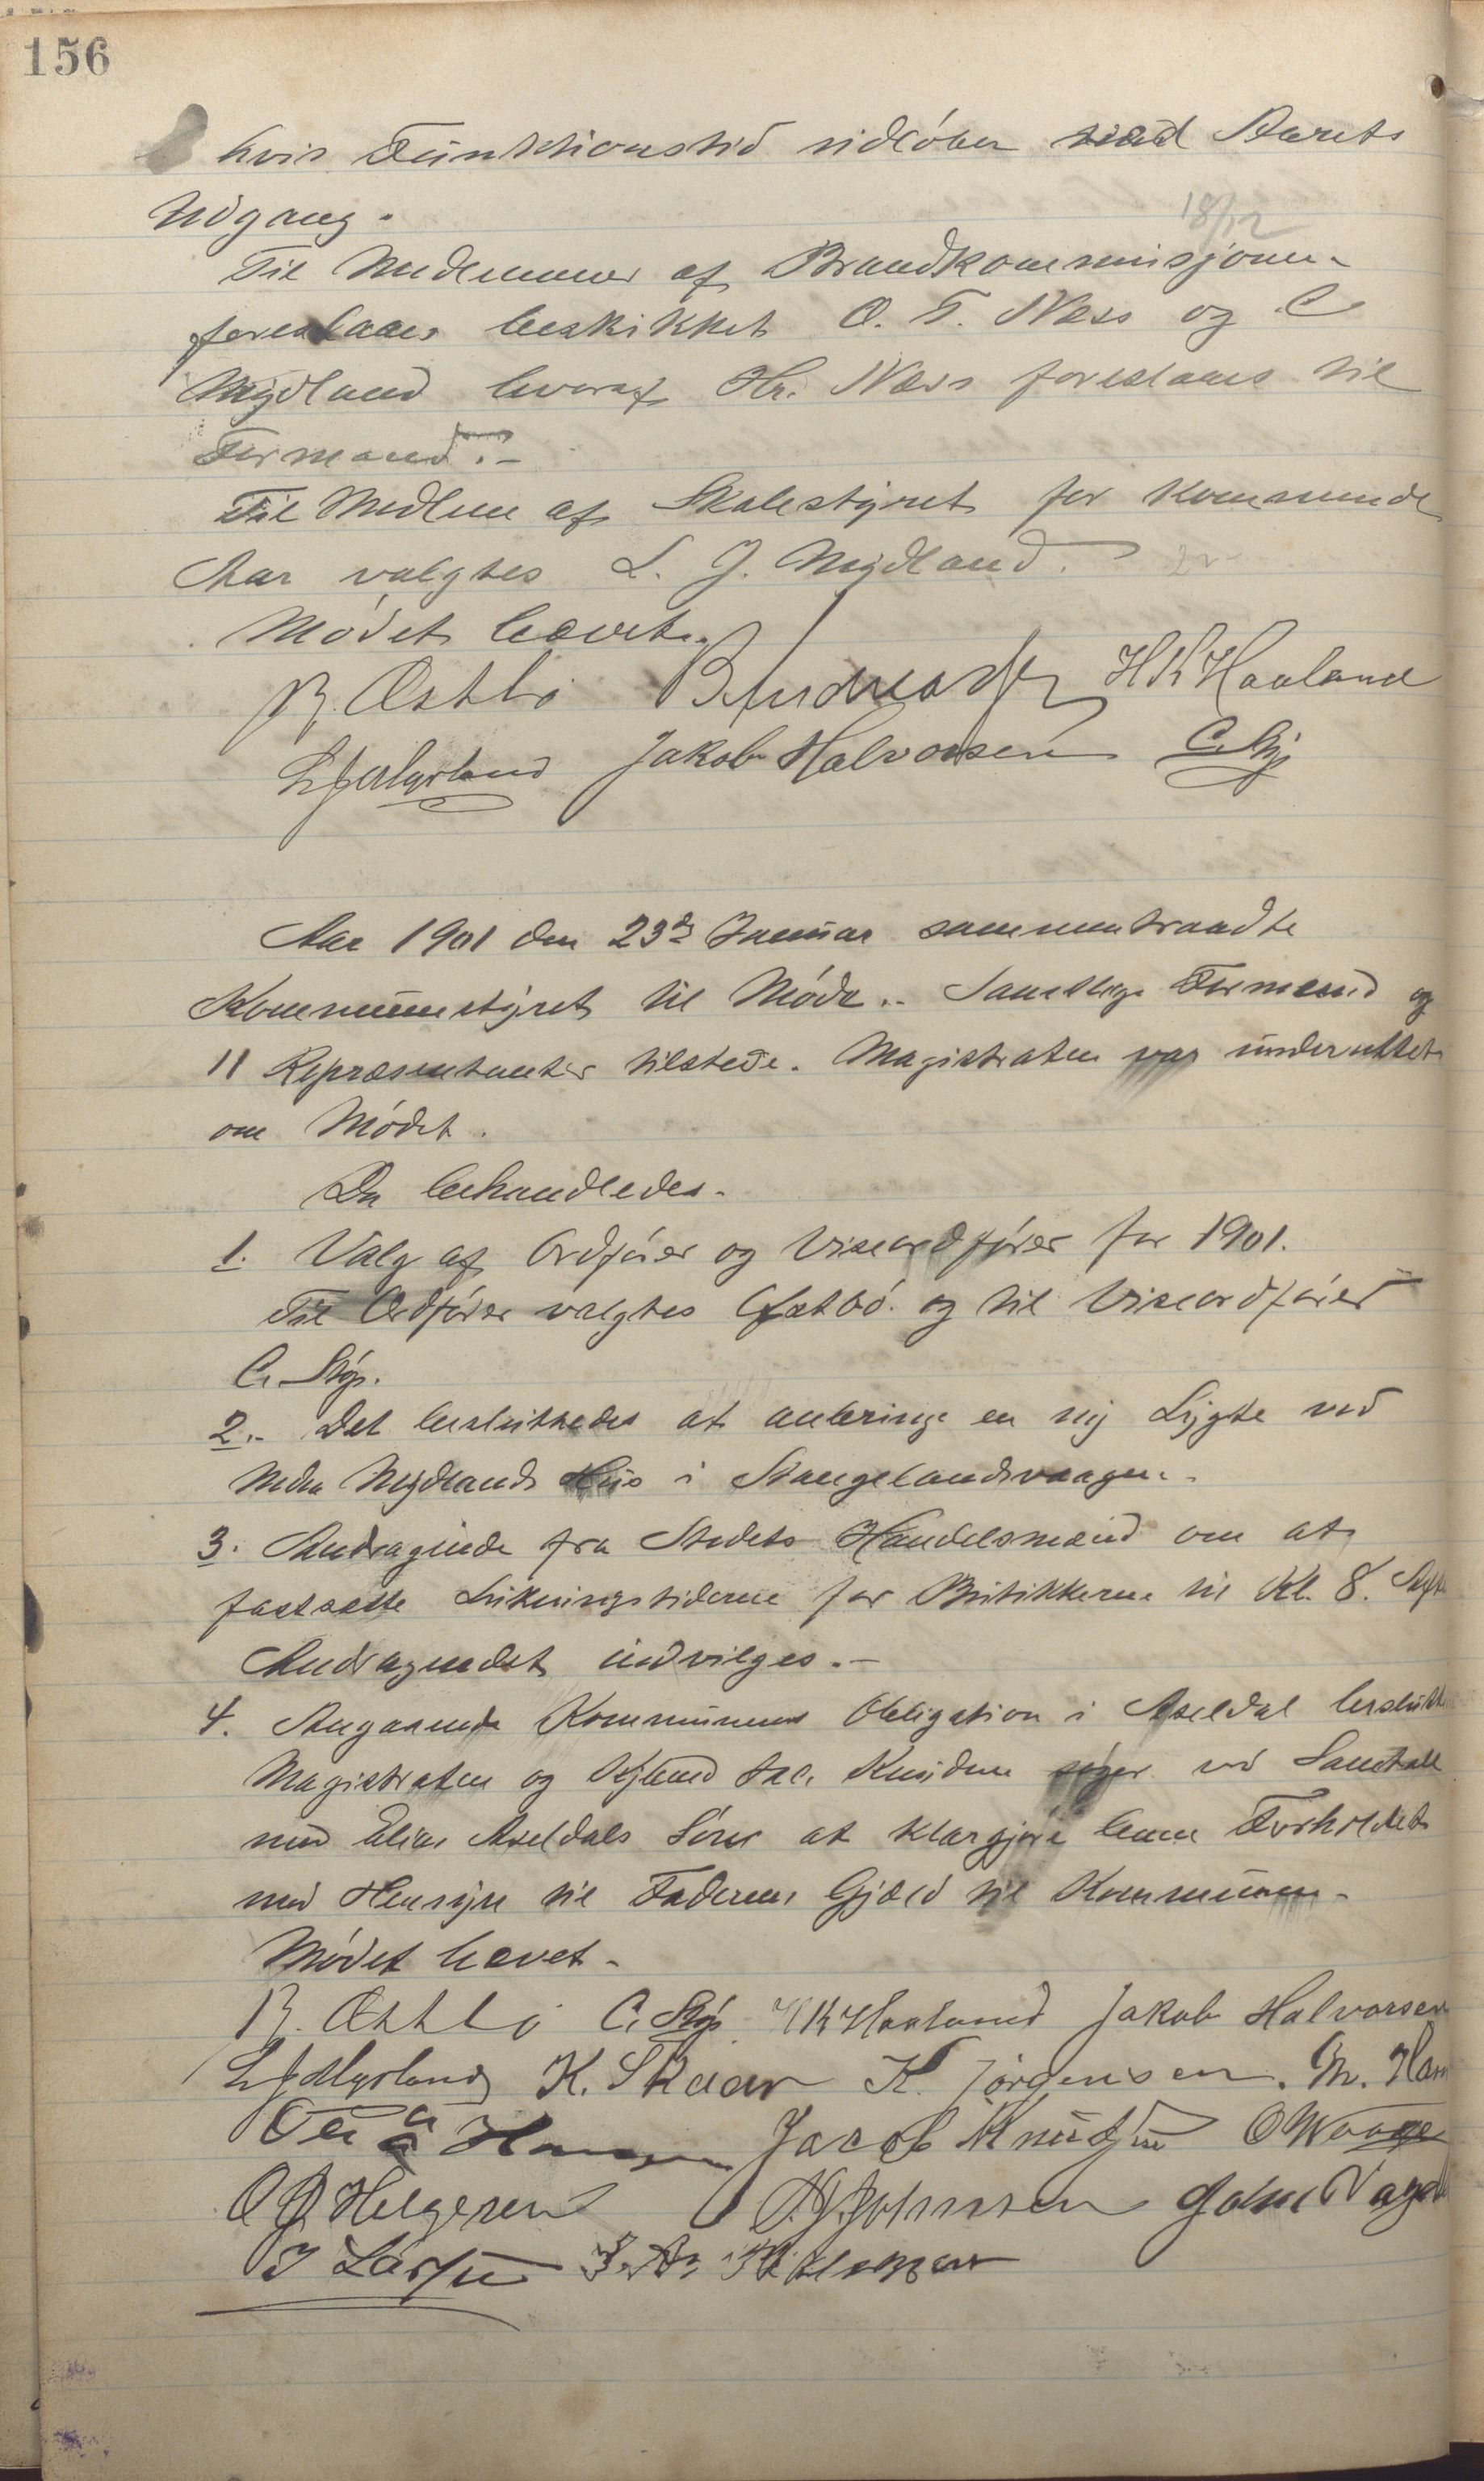 156
hvis Funktionstid udløber med Aarets
Udgang.
18/12
Til Medlemmer af Brandkommisjonen
foreslaaes beskikket O. T. Næss og C
Mydland hvoraf Hr. Næss foreslaaes til
Formand.-
Til Medlem af Skolestyret for kommende
Aar valgtes L. J. Mydland.
Mødet hævet.
R. Østbø B Andreassen H K Haaland
L J Mydland Jakob Halvorsen C. Støp
Aar 1901 den 23de Januar sammentraadte
Kommunestyret til Møde.. Samtlige Formænd og
11 Repræsentanter tilstede. Magistraten var underrettet
om Mødet.
Da behandledes.
1. Valg af Ordfører og Viseordfører for 1901.
Til Ordfører valgtes Østbø. og til Viseordfører
C. Støp.
2.- Det besluttedes at anbringe en ny Lygte ved
Mydlands Hus i Stangelandsvaagen.
3. Andragende fra Stedets Handelsmænd om at
fastsætte Lukningstiderne for Butikkerne til Kl. 8. Aften
Andragendet indvilges.-
4. Angaaende Kommunens Obligation i Axeldal beslutt
Magistraten og Kjæmd Jac. Knudsen søger ved Samtale
med Elias Axeldals Sønn at klargjøre ham Forholdet
med Hensyn til Faderens Gjæld til Kommunen-
Mødet hævet-
R. Østbø C. Støp H K Haaland Jakob Halvorsen
L J Mydland K. Skaar K. Jørgensen. M. Ham
Jacob Knudsen O Waage
O J Helgesen A. J. Johnsen John Vaga
J Larsen